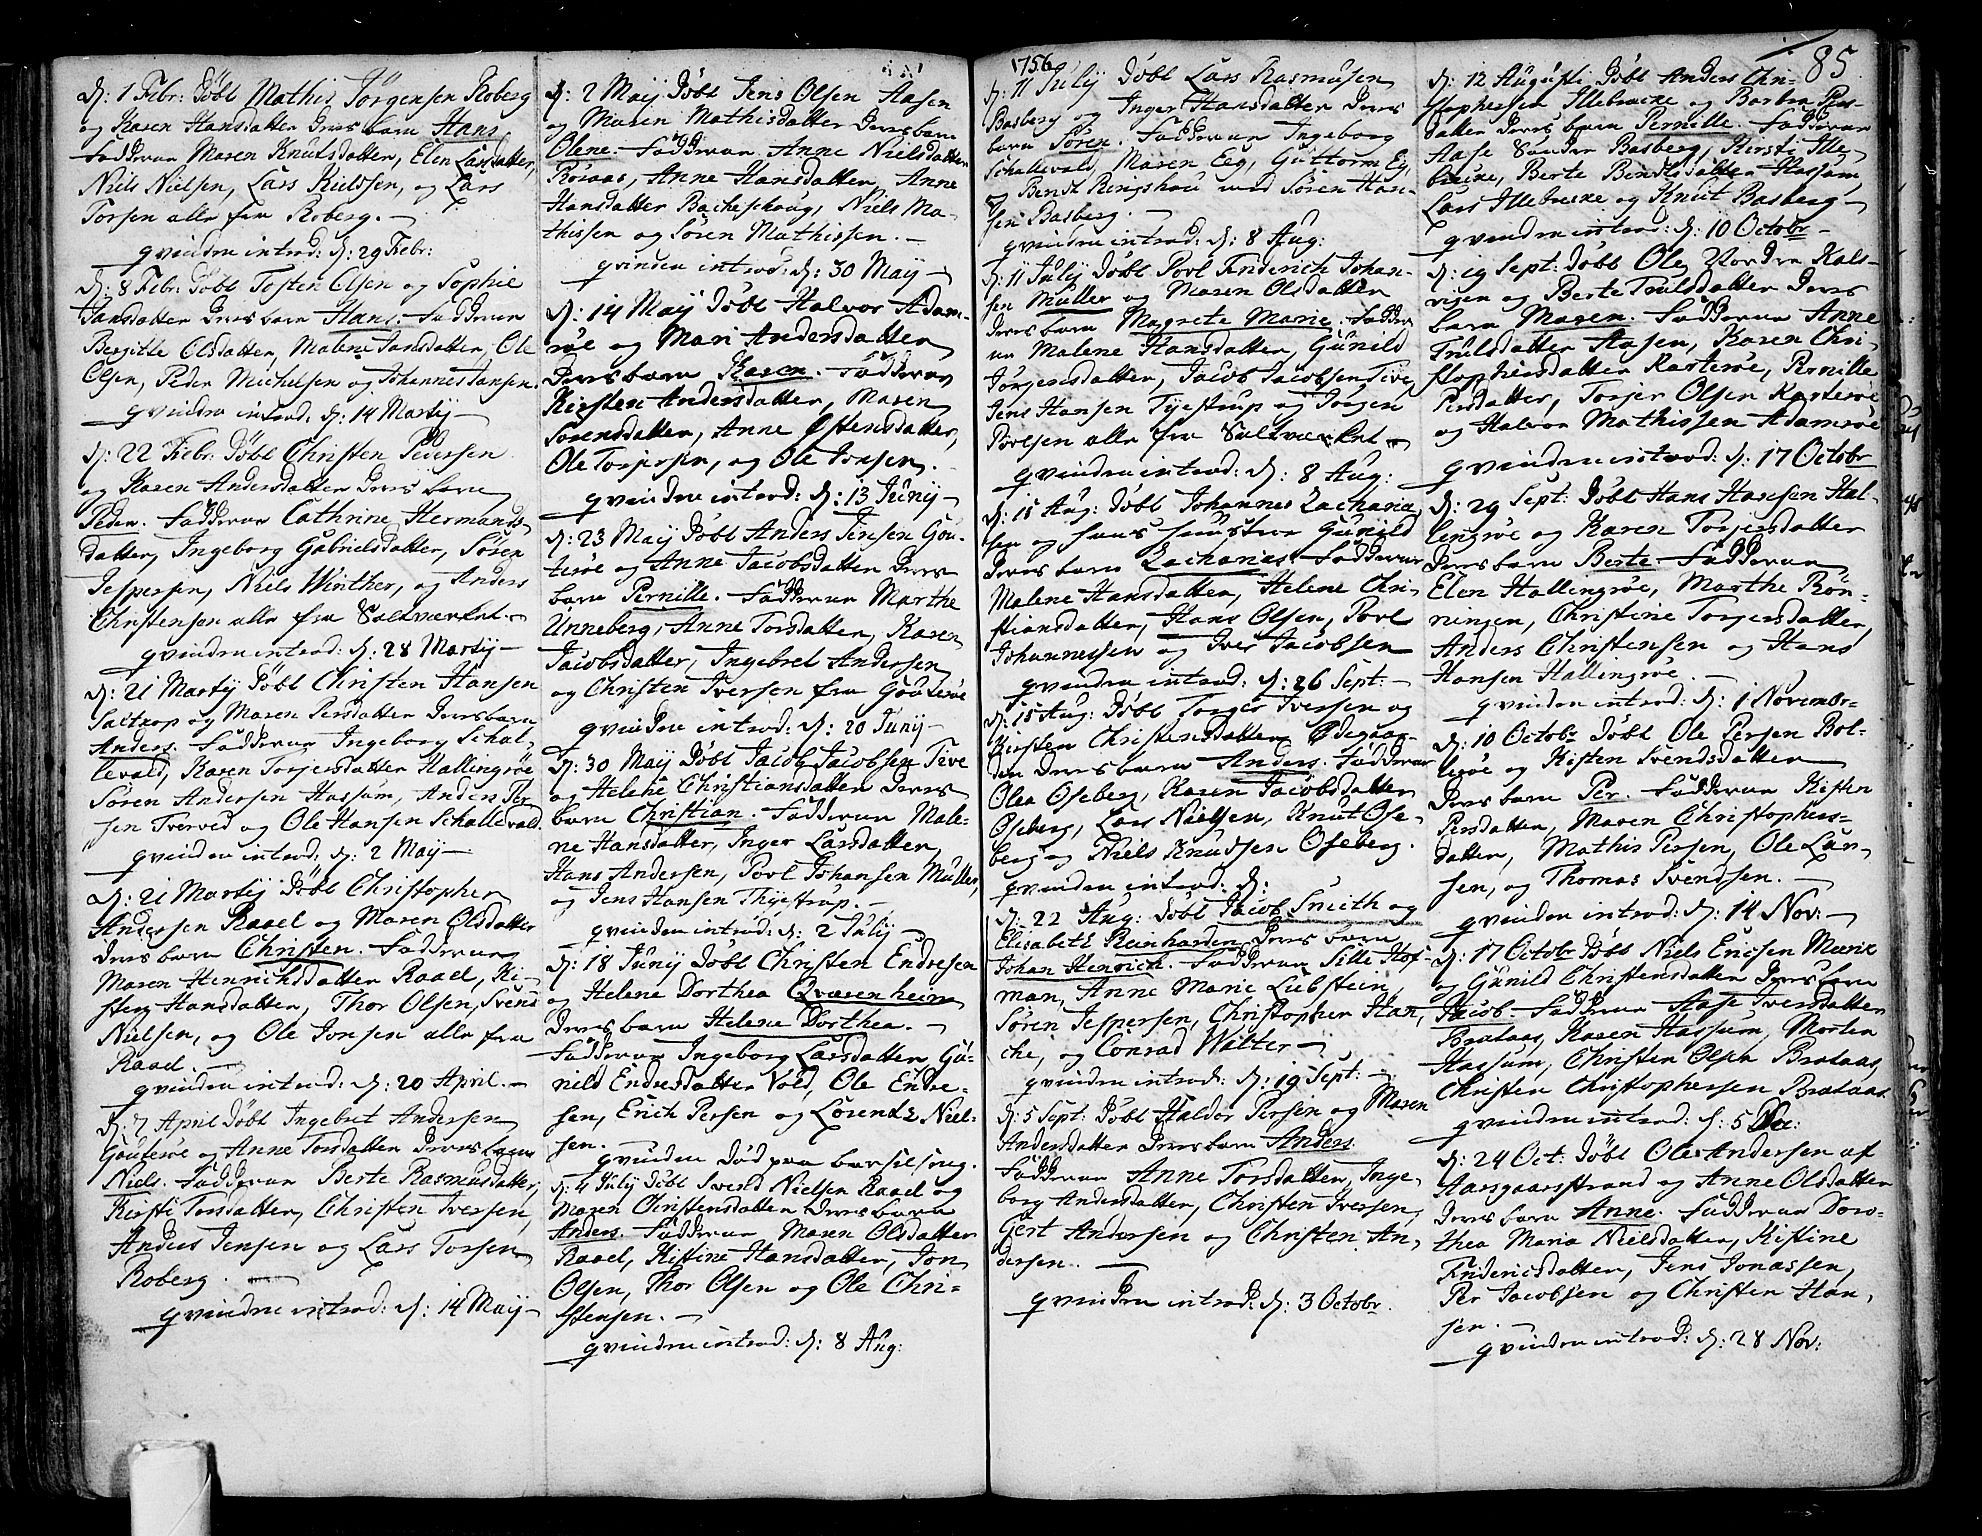 d: 1 Febr: Döbt Mathis Jörgensen Roberg
og Karen Hansdatter Deres barn Hans
Fadderne Maren Knutsdatter, Elen Larsdatter,
Niels Nielsen, Lars Kieldsen, og Lars
Torsen alle fra Roberg. –
qvinden introd: d: 29 Febr:
d: 8 Febr: Döbt Tosten Olsen og Sophie
Jansdatter Deres barn Hans. Fadderne
Bergitte Olsdatter, Malene Jansdatter, Ole
Olsen, Peder Michelsen og Johannes Jansen.
qvinden introd: d: 14 Martij –
d: 22 Febr: Döbt Christen Pedersen
og Karen Andersdatter Deres barn
Peder. Fadderne Cathrine Hermands-
datter, Ingeborg Gabrielsdatter, Sören
Jespersen, Niels Winther, og Anders
Christensen alle fra Saltværket.
qvinden introd: d: 28 Martij –
d: 21 Martij Döbt Christen Hansen
Saltrop og Maren Persdatter Deres barn
Anders. Fadderne Ingeborg Schal-
levald, Karen Torjersdatter Hallingröe
Sören Andersen Hassum, Anders Per-
sen Tverved og Ole Hansen Schallevald.
qvinden introd: d: 2 May –
d: 21 Martij Döbt Christopher
Andersen Raael og Maren Olsdatter
Deres barn Christen. Fadderne
Maren Henrichsdatter Raael, Ki-
sten Hansdatter, Thor Olsen, Svend
Nielsen, og Ole Jonsen alle fra
Raael. –
qvinden introd: d: 20 April. –
d: 7 April Döbt Ingebret Andersen
Gouteröe og Anne Torsdatter Deres barn
Niels. Fadderne Berte Rasmusdatter,
Kirsti Torsdatter, Christen Iversen,
Anders Jensen og Lars Torsen
Roberg. –
qvinden introd: d: 14 Maij –
d: 2 Maij Döbt Jens Olsen Aasen
og Maren Mathisdatter Deres barn
Olene. Fadderne Anne Nielsdatter
Röraas, Anne Hansdatter, Anne
Hansdatter Bacheschoug, Niels Ma-
thissen og Sören Mathissen. –
qvinden introd: d: 30 Maij –
d: 14 Maij Döbt Halvor Adam-
röe og Mari Andersdatter
Deres barn Karen. Fadderne
Kirsten Andersdatter, Maren
Sörensdatter, Anne Estensdatter,
Ole Torjersen, og Ole Jonsen. –
qvinden introd: d: 13 Junij –
d: 23 Maij Döbt Anders Jensen Gou-
teröe og Anne Jacobsdatter Deres
barn Pernille. Fadderne Marthe
Unneberg, Anne Torsdatter, Karen
Jacobsdatter, Ingebret Andersen
og Christen Iversen fra Gouteröe
qvinden introd: d: 20 Junij –
d: 30 Maij Döbt Jacob Jacobsen Tive
og Helene Christiansdatter Deres
barn Christian. Fadderne Male-
ne Hansdatter, Inger Larsdatter,
Hans Andersen, Povl Johansen Muller,
og Jens Hansen Thyestrup. –
qvinden introd: d: 2 Julij –
d: 18 Junij Döbt Christen Endresen
og Helene Dorthea Qværenheim
Deres barn Helene Dorthea. –
Fadderne Ingeborg Larsdatter, Gu-
nield Endresdatter Vold, Ole Endre-
sen, Erich Persen og Lorentz Niel-
sen.
qvinden död paa barselseng.
d: 4 Julij Döbt Svend Nielsen Raael og
Maren Christensdatter Deres barn
Anders. Fadderne Maren Olsdatter
Raael, Kistine Hansdatter, Jon
Olsen, Thor Olsen og Ole Chri-
stensen. –
qvinden introd: d: 8 Aug:
1756
d: 11 Julij Döbt Lars Rasmusen
Basberg og Inger Hansdatter Deres
barn Sören. Fadderne Ingeborg
Schallevald, Maren Eeg, Guttorm Eeg,
og Bendt Ringshou med Sören Han-
sen Basberg. –
qvinden introd: d: 8 Aug:
d: 11 Julij Döbt Povl Friderich Johan-
sen Muller og Maren Olsdatter
Deres barn Magrete Marie. Fadder-
ne Malene Hansdatter, Gunild
Jörgensdatter, Jacob Jacobsen Tive,
Jens Hansen Tyestrup og Jörgen
Povlsen alle fra Saltværket –
qvinden introd: d: 8 Aug:
d: 15 Aug: Döbt Johannes Zacharia-
sen og hans hustroe Gunild
Deres barn Zacharias. Fadderne
Malene Hansdatter, Helene Chri-
stiansdatter, Hans Olsen, Povl
Johannessen og Iver Jacobsen
qvinden introd: d: 26 Sept: –
d: 15 Aug: Döbt Torger Iversen og
Kirsten Christensdatter Ødegaar-
den Deres barn Anders. Fadderne
Olea Oseberg, Karen Jacobsdatter
Oseberg, Lars Nielsen, Knut Ose-
berg og Niels Knudsen Oseberg.
qvinden introd: d:
d: 22 Aug: Döbt Jacob Smith og
Elisabeth Reinharden Deres barn
Johan Henrich. Fadderne Sille Hof-
man, Anne Marie Liebstein,
Sören Jespersen, Christopher Han-
che, og Conrad Walter –
qvinden introd: d: 19 Sept: –
d: 5 Sept: Döbt Haldor Persen og Maren
Andersdatter Deres barn Anders
Fadderne Anne Torsdatter, Inge-
borg Andersdatter, Christen Iversen,
Gert Andersen og Christen An-
dersen. –
qvinden introd: d: 3 Octobr.
85
d: 12 Augusti Döbt Anders Chri-
stophersen Illebrecke og Barbra Pers-
datter Deres barn Pernille. Fadderne
Aase Sander Basberg, Kirsti Ille-
brecke, Berte Bendtsdatter Hassum,
Lars Illebrecke og Knut Basberg –
qvinden introd: d: 10 Octobr –
d: 19 Sept: Döbt Ole Nordre Kals-
rigen og Berte Trulsdatter Deres
barn Maren. Fadderne Anne
Trulsdatter Aasen, Karen Chri-
stophersdatter Karteröe, Pernille
Persdatter, Torjer Olsen Karteröe
og Halvor Mathissen Adamröe
qvinden introd: d: 17 Octobr
d: 29 Sept: Döbt Hans Hansen Hal-
lingröe og Karen Torjersdatter
Deres barn Berte. Fadderne
Elen Hallingröe, Marthe Rön-
ningen, Christine Torjersdatter,
Anders Christensen og Hans
Hansen Hallingröe. –
qvinden introd: d: 1 Novembr –
d: 10 Octobr Döbt Ole Persen Bol-
leröe og Kisten Svendsdatter
Deres barn Per. Fadderne Kisten
Persdatter, Maren Christophers-
datter, Mathis Persen, Ole Lar-
sen, og Thomas Svendsen. –
qvinden introd: d: 14 Nov: –
d: 17 Octobr Döbt Niels Ericsen Murie
og Gunild Christensdatter Deres barn
Jacob. Fadderne Aase Iversdatter
Brataas, Karen Hassum, Morten
Hassum, Christen Olsen Brataas,
Christen Christophersen Brataas.
qvinden introd: d: 5 Dec:
d: 24 Oct: Döbt Ole Andersen af
Aarsgaarsstrand og Anne Olsdatter
Deres barn Anne. Fadderne Doro-
thea Maria Nielsdatter, Kistine
Friderichsdatter, Jens Jonassen,
Per Jacobsen og Christen Han-
sen. –
qvinden introd: d: 28 Nov: